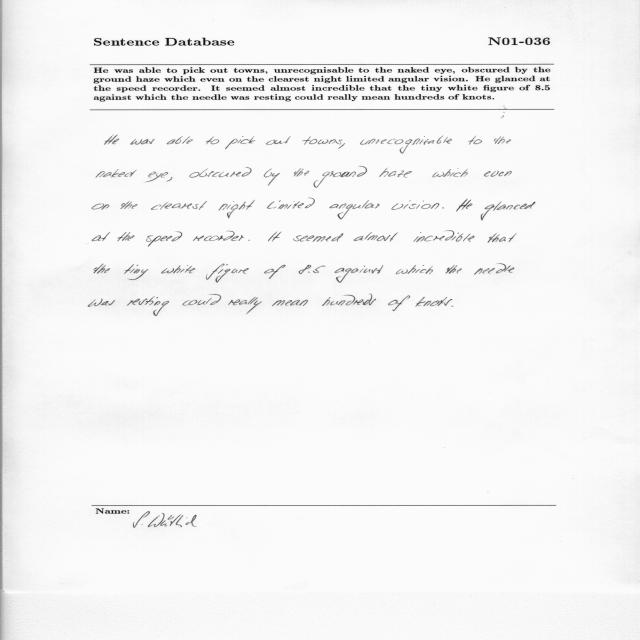 Sentence Database N01-036
He was able to pick out towns, unrecognisable to the naked eye, obscured by the
ground haze which even on the clearest night limited angular vision. He glanced at
the speed recorder. It seemed almost incredible that the tiny white figure of 8.5
against which the needle was resting could really mean hundreds of knots.
He was able to pick out towns, unrecognisable to the
naked eye, obscured by the ground haze which even
on the clearest night limited angular vision. He glanced
at the speed recorder. It seemed almost incredible that
the tiny white figure of 8.5 against which the needle
was resting could really mean hundreds of knots.
Name: S.